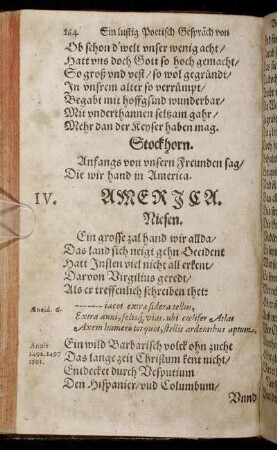 264 Ein lustig Poetisch Gespräch von
Ob schon d'welt vnser wenig acht/
Hatt vns doch Gott so hoch gemacht/
So groß vnd vest/ so wol gegründt/
In vnsrem alter so verrümpt/
Begabt mit hoffgsind wunderbar/
Mit vnderthannen seltzam gahr/
Mehr dan der Keyser haben mag.
Stockhorn.
Anfangs von vnsern Freunden sag/
Die wir hand in America.
IV. AMERICA.
Niesen.
Ein grosse zal hand wir allda/
Das land sich neigt gehn Occident
Hatt Inslen viel nicht all erkent/
Darvon Virgilius geredt/
Als er treffenlich schreiben thet:
Æneid. 6. ------- iacet extra sidera tellus,
Extra anni, solisq; vias, ubi cœlifer Atlas
Axem humero torquet, stellis ardentibus aptum.
Annis
1492. 1497
1501.
Ein wild Barbarisch volck ohn zucht
Das lange zeit Christum kent nicht/
Entdecket durch Vesputium
Den Hispanier/ vnd Columbum/
Vnnd